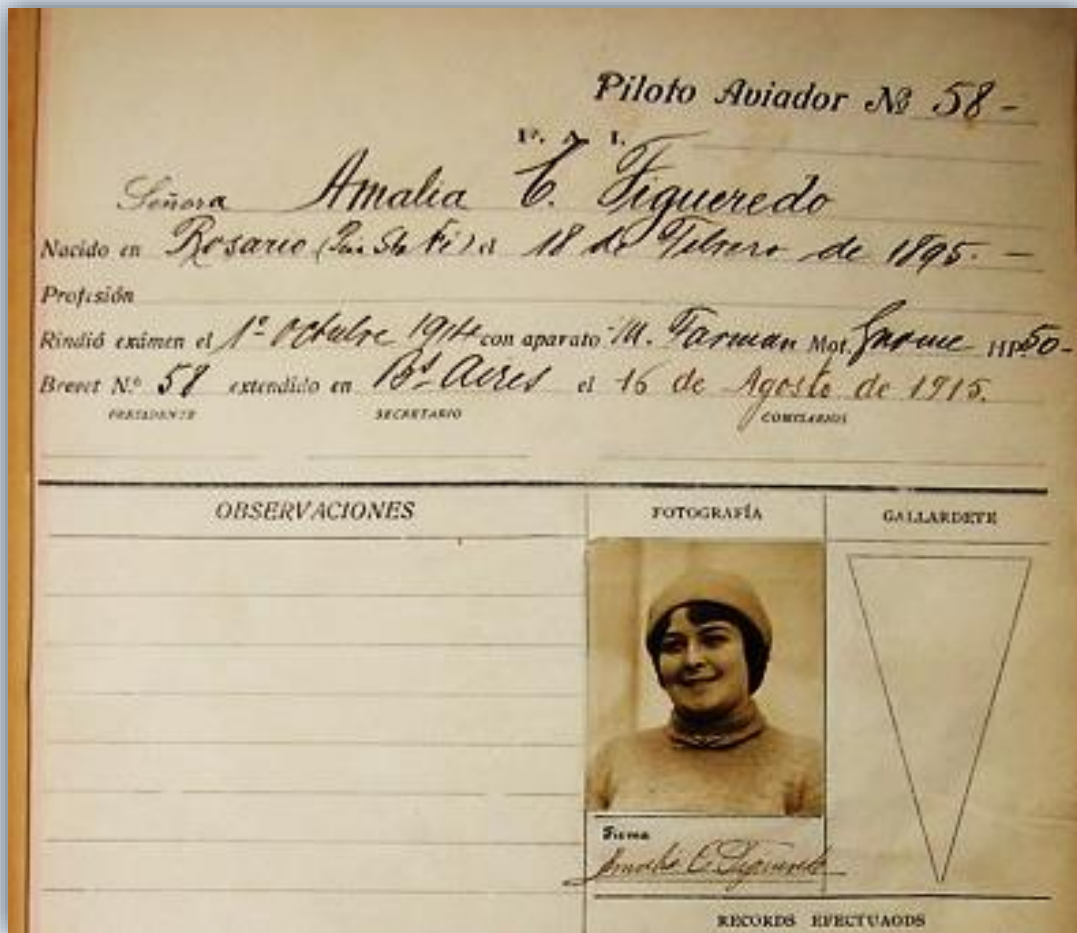 Piloto Aviador Nº 58 -
F. A. I.
Señora Amalia C. Figueredo
Nacido en Rosario (Pcia. Sta Fé) el 18 de Febrero de 1895. -
Profesión
Rindió exámen el 1º Octubre 1914 con aparato M. Farman Mot. Gnome HP 50-
Brevet N.º 58 extendido en Bs Aires el 16 de Agosto de 1915.
PRESIDENTE SECRETARIO COMISARIOS
OBSERVACIONES FOTOGRAFÍA GALLARDETE
Firma
Amalia C. Figueredo
RECORDS EFECTUAODS